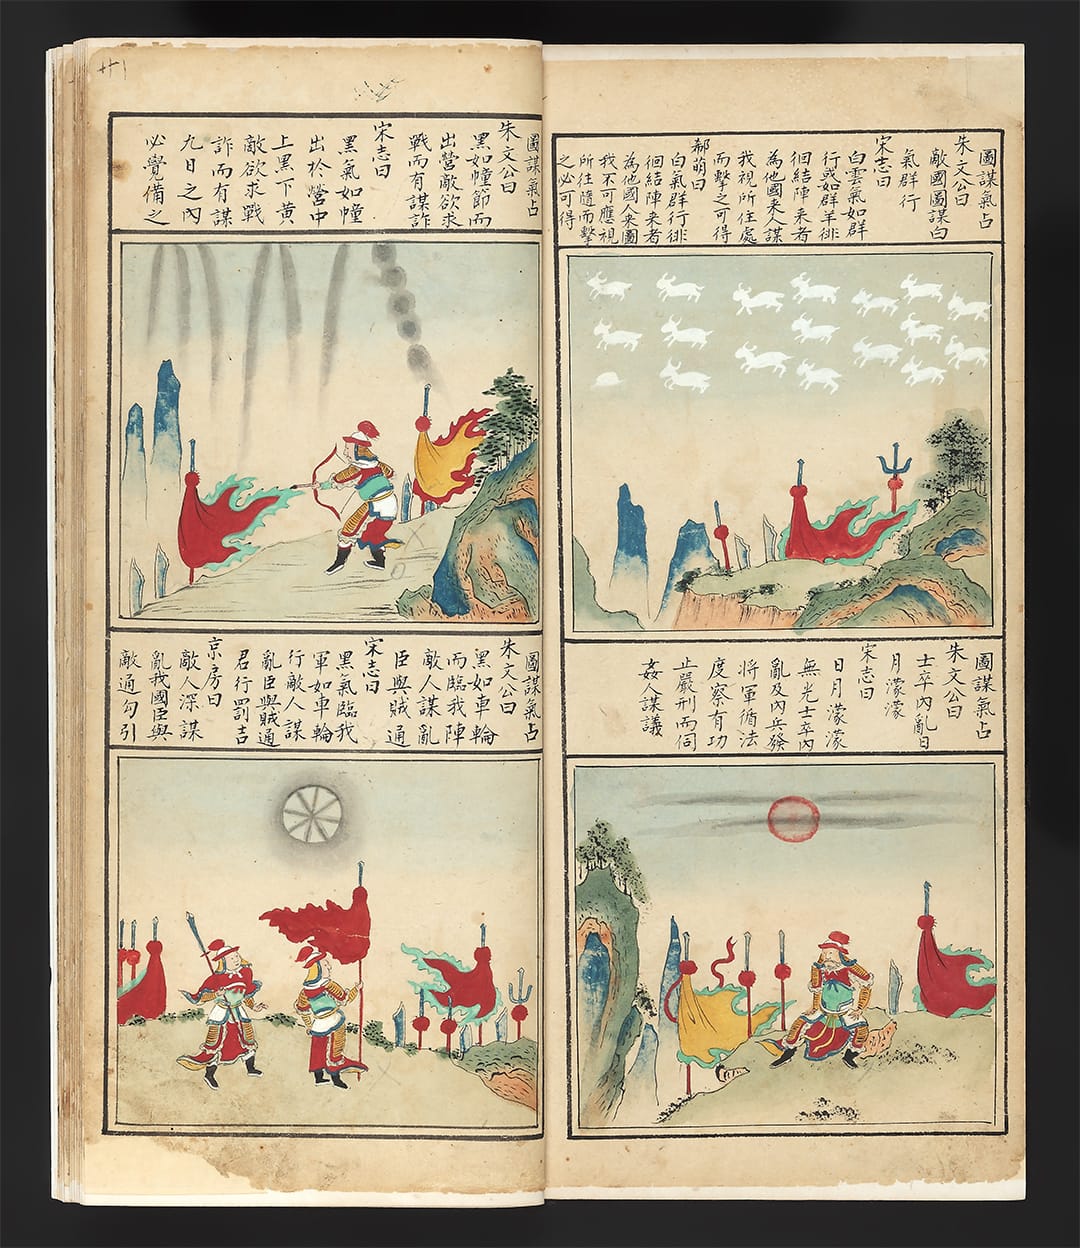 圖謀氣占
朱文公曰
敵國圖謀白
氣群行
宋志曰
白雲氣如群
行或如群羊徘
徊結陣来者
為他國来人謀
我視所住處
而擊之可得
郝萌曰
白氣群行徘
徊結陣来者
為他國人来圖
我不可應視
所往隨而擊
之必可得
圖謀氣占
朱文公曰
士卒內亂日
月濛濛
宋志曰
日月濛濛
無光士卒內
亂及內兵發
將軍循法
度察有功
止嚴刑而伺
姦人謀議
圖謀氣占
朱文公曰
黑如幢節而
出營敵欲求
戰而有謀詐
宋志曰
黑氣如幢
出於營中
上黑下黄
敵欲求戰
詐而有謀
九日之內
必覺備之
圖謀氣占
朱文公曰
黑如車輪
而臨我陣
敵人謀亂
臣與賊通
宋志曰
黑氣臨我
軍如車輪
行敵人謀
亂臣與賊通
君行罰吉
京房曰
敵人深謀
亂我國臣與
敵通勾引